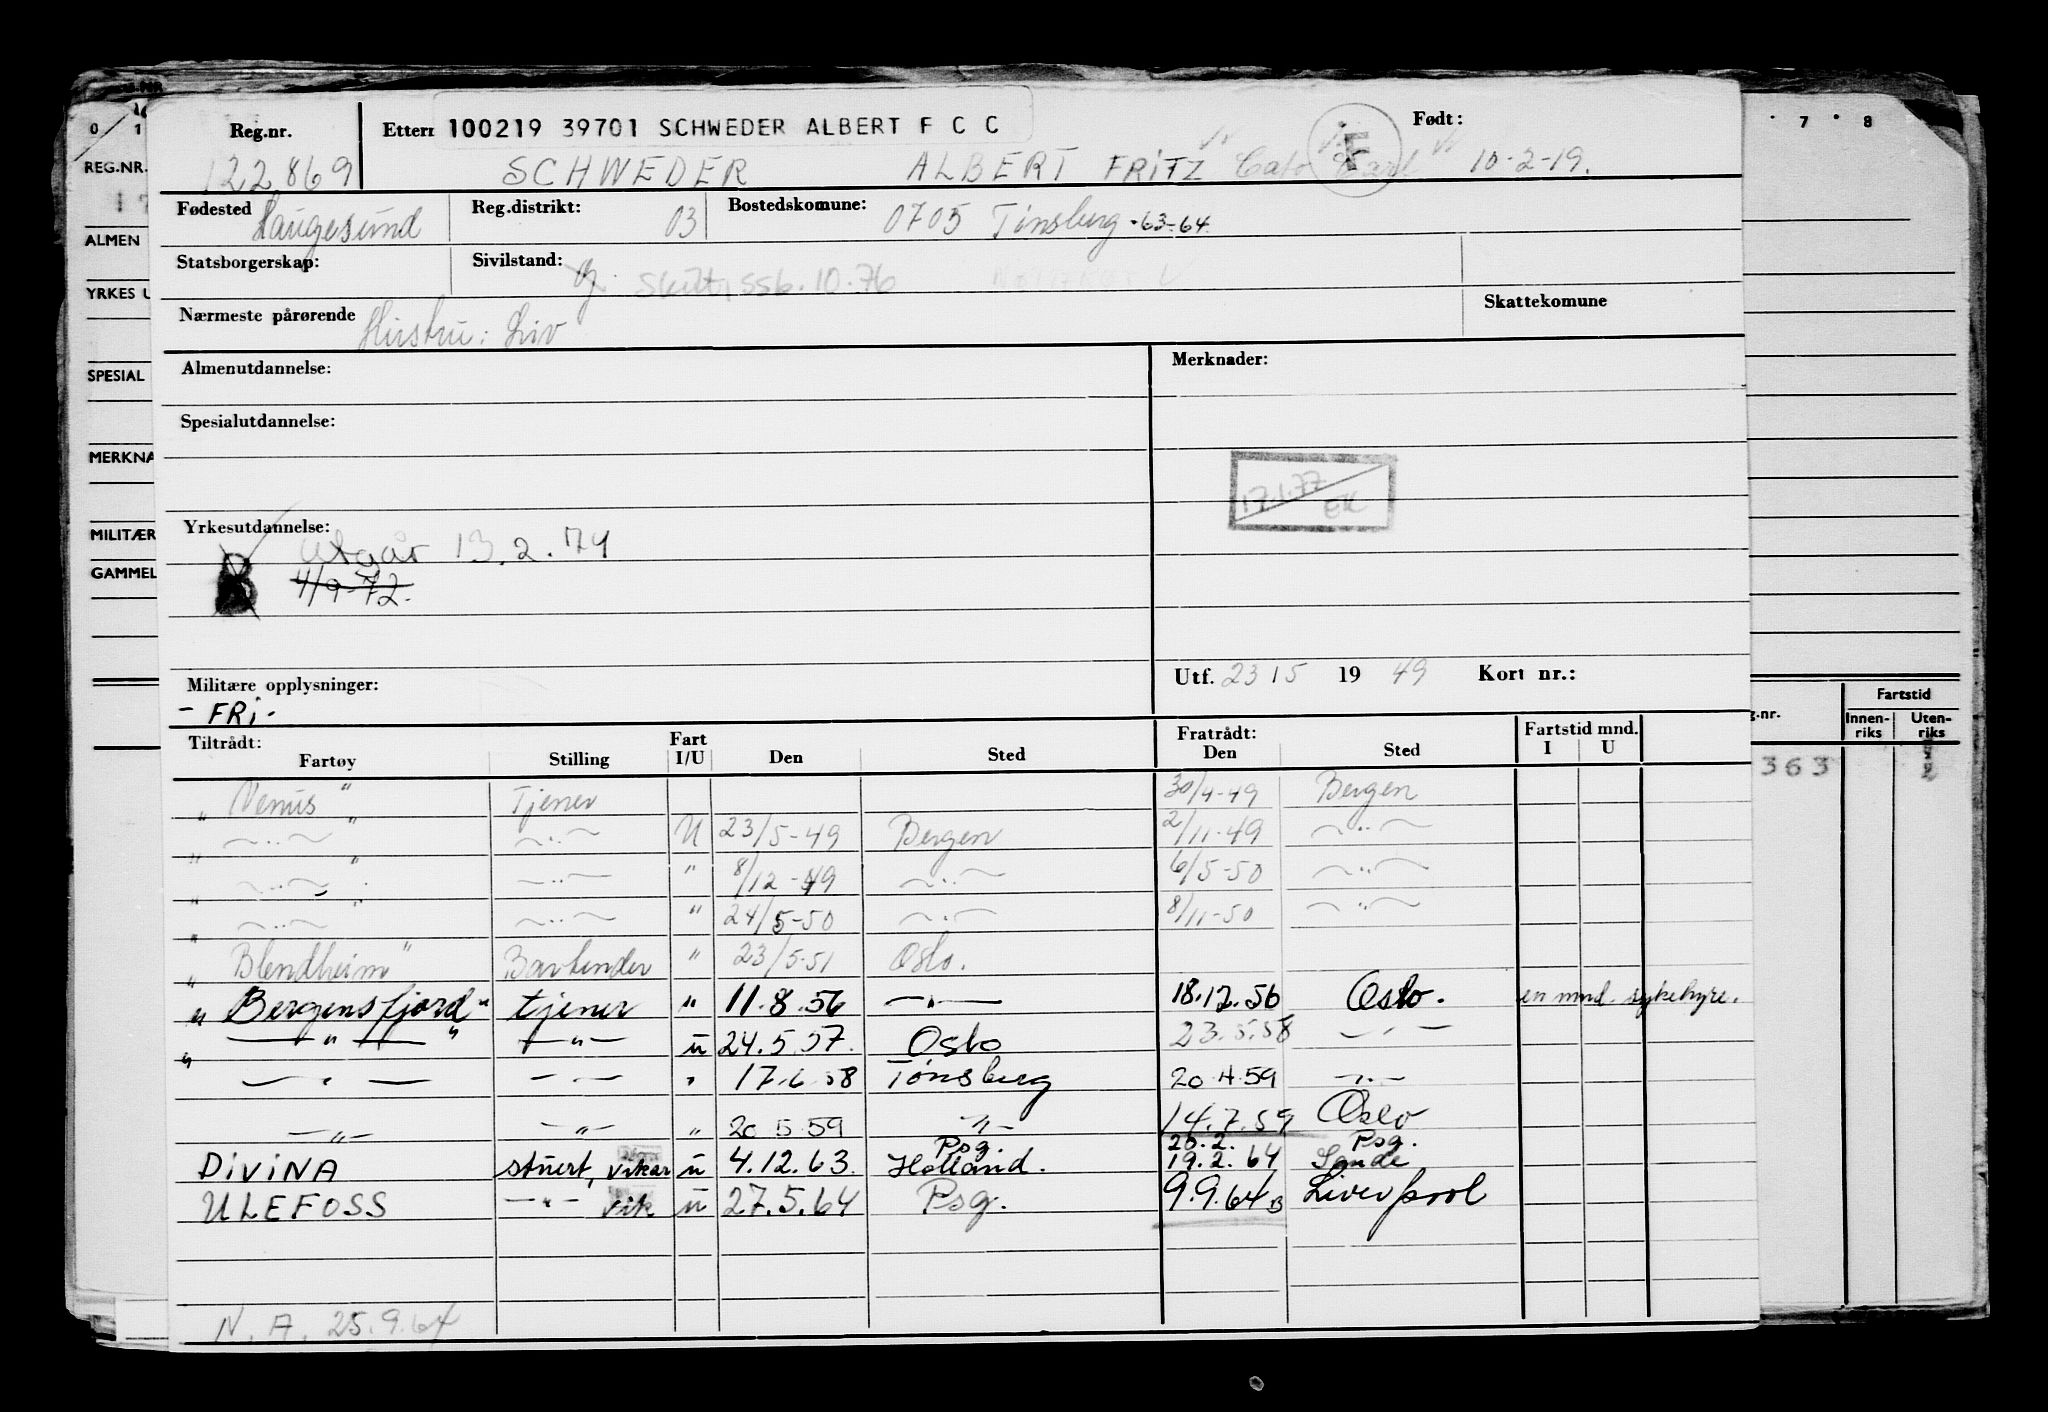 Reg.nr. Ettern 100219 39701 SCHWEDER ALBERT F C C Født:
122869 SCHWEDER ALBERT FRITZ Cato Carl 10-2-19.
F
Fødested Haugesund Reg.distrikt: 03 Bostedskomune: 0705 Tønsberg -63-64
Statsborgerskap: Sivilstand: g. Skilt, 10.76
Nærmeste pårørende Hustru: Liv Skattekomune
Almenutdannelse: Merknader:
Spesialutdannelse:
17.1.77 EK
Yrkesutdannelse:
Utgår 13.2.74
4/9-72.
Militære opplysninger: Utf. 23/5 19 49 Kort nr.:
- FRI -
Tiltrådt: Fratrådt: Fartstid mnd.
Fartøy Stilling Fart I/U Den Sted Den Sted I U
" Venus " Tjener 30/4-49 Bergen
" —..— " —..— U 23/5-49 Bergen 2/11-49 —..—
" —..— " —..— " 8/12-49 —..— 6/5-50 —..—
" —..— " —..— " 24/5-50 —..— 8/11-50 —..—
" Blendheim " Bartender " 23/5-51 Oslo.
" Bergensfjord " tjener " 11.8.56 —"— 18.12.56 Oslo. en mnd. sykehyre.
" —"— " —"— u 24.5.57. Oslo 23.5.58 —"—
—"— —"— " 17.6.58 Tønsberg 20.4.59 —"—
—"— —"— " 20.5.59 —"— 14.7.59 Oslo
DIVINA stuert, vikar u 4.12.63. Psg. Holland. 20.2. 19.2.64 Psg. Sande
ULEFOSS —"— vik u 27.5.64 Psg. 9.9.64 B Liverpool
N.A. 25.9.64
0 1
REG.NR.
17
ALMEN
YRKES U
SPESIAL
MERKNA
MILITÆR
GAMMEL
7 8
g.nr. Fartstid
Innen-riks Uten-riks
363